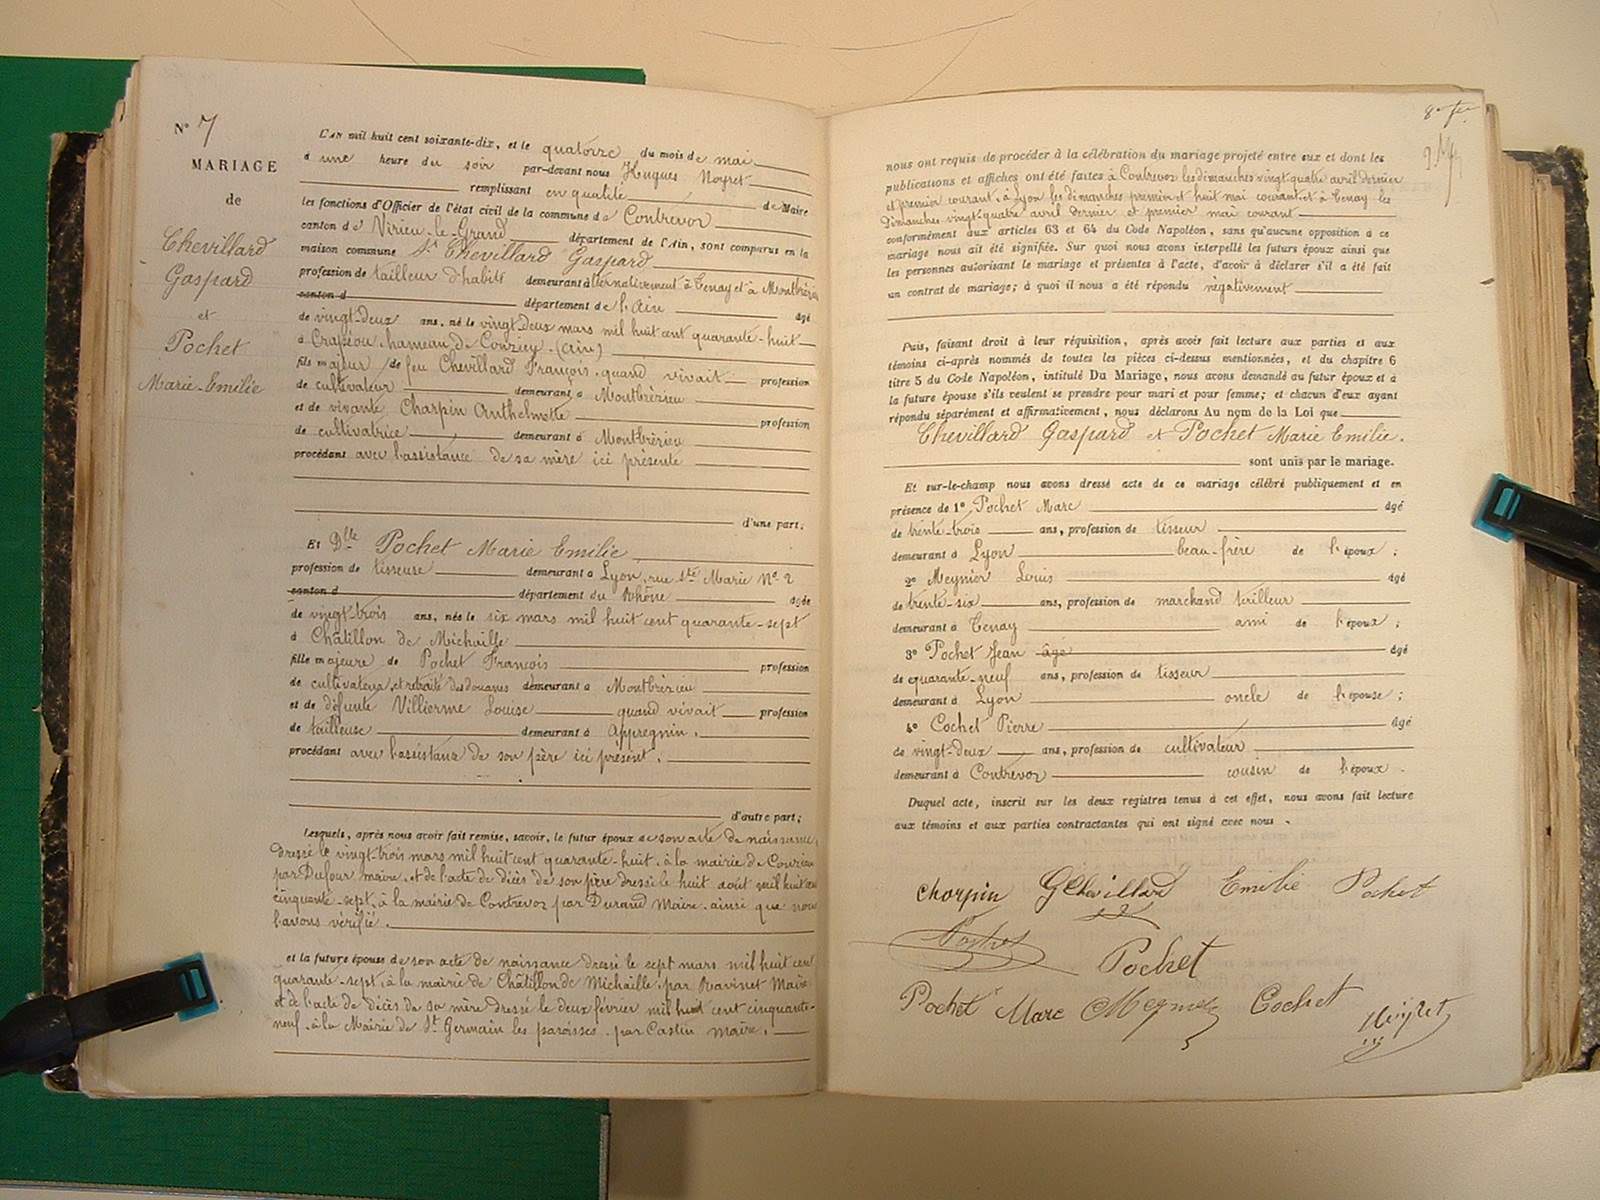 N° 7
MARIAGE
de
Chevillard
Gaspard
et
Pochet
Marie-Emilie
L'AN mil huit cent soixante-dix, et le quatorze du mois de mai
à une heure du soir par-devant nous Hugues Neyret
remplissant en qualité de Maire
les fonctions d'Officier de l'état civil de la commune de Contrevoz
canton de Virieu-le-Grand département de l'Ain, sont comparus en la
maison commune Sr Chevillard Gaspard
profession de tailleur d'habits demeurant alternativement à Tenay et à Montbrézieu
canton d département de l'Ain âgé
de vingt-deux ans, né le vingt-deux mars mil huit cent quarante-huit
à Crapéou hameau de Conzieu (Ain)
fils majeur de feu Chevillard François quand vivait profession
de cultivateur demeurant à Montbrézieu
et de vivante Charpin Anthelmette profession
de cultivatrice demeurant à Montbrézieu
procédant avec l'assistance de sa mère ici présente
d'une part;
Et Dlle Pochet Marie Emilie
profession de tisseuse demeurant à Lyon, rue Ste Marie N° 2
canton d département du Rhône âgée
de vingt-trois ans, née le six mars mil huit cent quarante-sept
à Châtillon de Michaille
fille majeure de Pochet François profession
de cultivateur et retraité des douanes demeurant à Montbrézieu
et de défunte Villierme Louise quand vivait profession
de tailleuse demeurant à Appregnin.
procédant avec l'assistance de son père ici présent.
d'autre part;
Lesquels, après nous avoir fait remise, savoir, le futur époux de son acte de naissance,
dressé le vingt-trois mars mil huit cent quarante-huit, à la mairie de Conzieu
par Dufour maire, et de l'acte de décès de son père dressé le huit août mil huit cent
cinquante-sept, à la mairie de Contrevoz par Durand Maire, ainsi que nous
l'avons vérifié.
et la future épouse de son acte de naissance dressé le sept mars mil huit cent
quarante-sept, à la mairie de Châtillon de Michaille, par Ravinet Maire
et de l'acte de décès de sa mère dressé le deux février mil huit cent cinquante-
neuf, à la Mairie de St Germain les paroisses, par Castin maire.
nous ont requis de procéder à la célébration du mariage projeté entre eux et dont les
publications et affiches ont été faites à Contrevoz les dimanches vingt-quatre avril dernier
et premier courant, à Lyon les dimanches premier et huit mai courant et à Tenay les
dimanches vingt-quatre avril dernier et premier mai courant
conformément aux articles 63 et 64 du Code Napoléon, sans qu'aucune opposition à ce
mariage nous ait été signifiée. Sur quoi nous avons interpellé les futurs époux ainsi que
les personnes autorisant le mariage et présentes à l'acte, d'avoir à déclarer s'il a été fait
un contrat de mariage; à quoi il nous a été répondu négativement
Puis, faisant droit à leur réquisition, après avoir fait lecture aux parties et aux
témoins ci-après nommés de toutes les pièces ci-dessus mentionnées, et du chapitre 6
titre 5 du Code Napoléon, intitulé Du Mariage, nous avons demandé au futur époux et à
la future épouse s'ils veulent se prendre pour mari et pour femme; et chacun d'eux ayant
répondu séparément et affirmativement, nous déclarons Au nom de la Loi que
Chevillard Gaspard et Pochet Marie Emilie.
sont unis par le mariage.
Et sur-le-champ nous avons dressé acte de ce mariage célébré publiquement et en
présence de 1° Pochet Marc âgé
de trente-trois ans, profession de tisseur
demeurant à Lyon beau-frère de l'époux;
2° Meynier Louis âgé
de trente-six ans, profession de marchand tailleur
demeurant à Tenay ami de l'époux;
3° Pochet Jean âgé âgé
de quarante-neuf ans, profession de tisseur
demeurant à Lyon oncle de l'épouse;
4° Cochet Pierre âgé
de vingt-deux ans, profession de cultivateur
demeurant à Contrevoz cousin de l'époux.
Duquel acte, inscrit sur les deux registres tenus à cet effet, nous avons fait lecture
aux témoins et aux parties contractantes qui ont signé avec nous.
Charpin GChevillard Emilie Pochet
Pochet
Pochet Marc Meynier Cochet Neyret